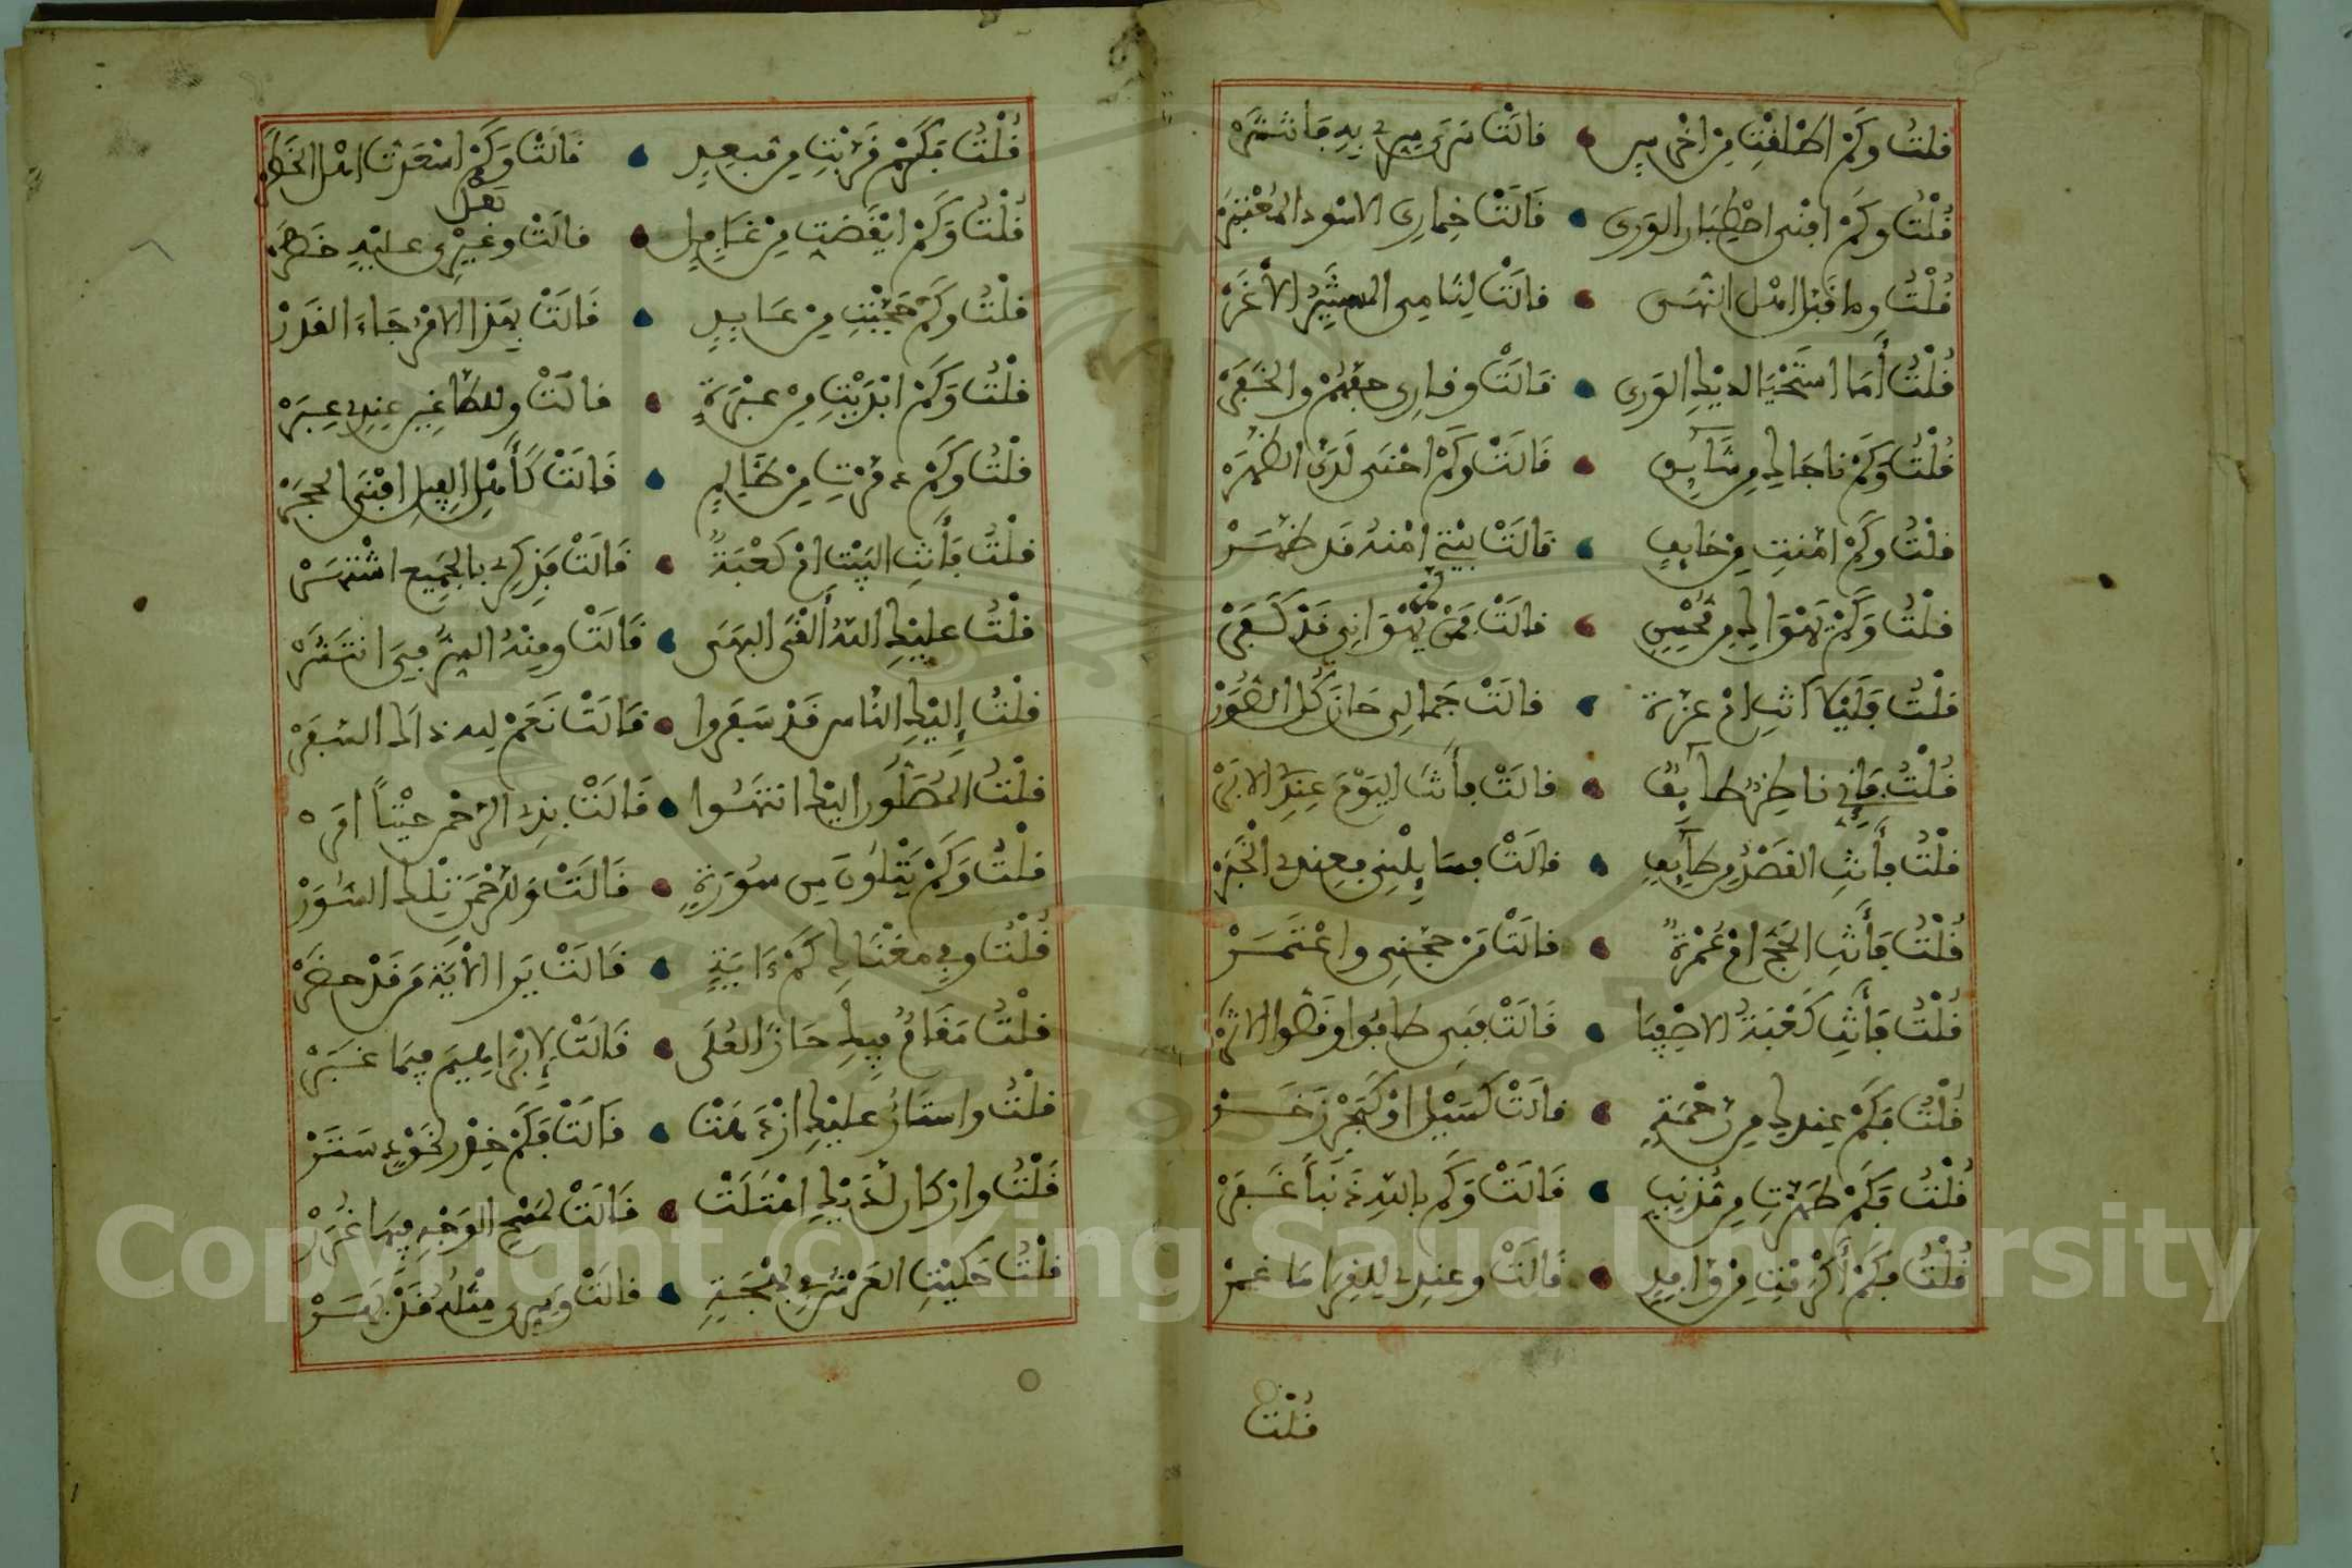 قلت وكم اطلقت من اخرس قالت سرى سري به فانتشر
قلت وكم افنى اصطبار الورى قالت خماري الاسود المعتبر
قلت وما قبل المثل انتهى قالت لثامي المستنير الاغر
قلت أما استحيا لديك الورى قالت وقاري حفهم والخفر
قلت وكم ناجاك من شايق قالت وكم اخنى لدي الظهر
قلت وكم امنت من خايف قالت بيتي امنه قد ظهر
قلت وكم يهواك من محسن قالت فمن لم يهواني قد كفر
قلت فليلا انت ام عزة قالت جمالي حاز كل الصور
قلت فإني ناظر طايف قالت فأنت اليوم عندي الابر
قلت فأنت القصد من طايف قالت فسايلني فعندي الخبر
قلت فأنت الحج ام عمرة قالت من حجني واعتمر
قلت فأنت كعبة الاصفيا قالت فبي طافوا وقضوا الاثر
قلت فكم عندك من رحمة قالت كسيل او كبحر زخر
قلت فكم طهرت من مذنب قالت وكم بالله ذنبا غفر
قلت فكم أكرمت من وافد قالت وعندي للقرا ما غمر
قلت
قلت فكم قربت من مبعد قالت وكم اسعدت اهل الخطر
قلت وكم ايقضت من غافل قالت وغيري عليه خطر
نعل
قلت وكم حجبت من عابد قالت بهذا الامر جاء القدر
قلت وكم ابديت من عبرة قالت وللطاغين عندي عبر
قلت وكم دمرت من ظالم قالت كأهل الفيل افنى الحجر
قلت فأنت البيت ام كعبة قالت فذكري بالجميع اشتهر
قلت عليك الله ألقى البهى قالت ومنه السر في انتشر
قلت إليك الناس قد سفروا قالت نعم ليد ذاك السفر
قلت المصلون اليك انتهوا قالت بذى الرحمن حيثا امر
قلت وكم يتلون من سورة قالت وللرحمن تلك السور
قلت وفي مغناك كم ءاية قالت يرا الاية من قد حضر
قلت مقام فيك حاز العلى قالت لإبراهيم فيما غبر
قلت واستار عليك ازدهت قالت فكم خود لخودي ستر
قلت واركان لديك اعتلت قالت لمسح الوجه فيها غرر
قلت حكيت العرش في بهجة قالت وسري مثله قد بهر